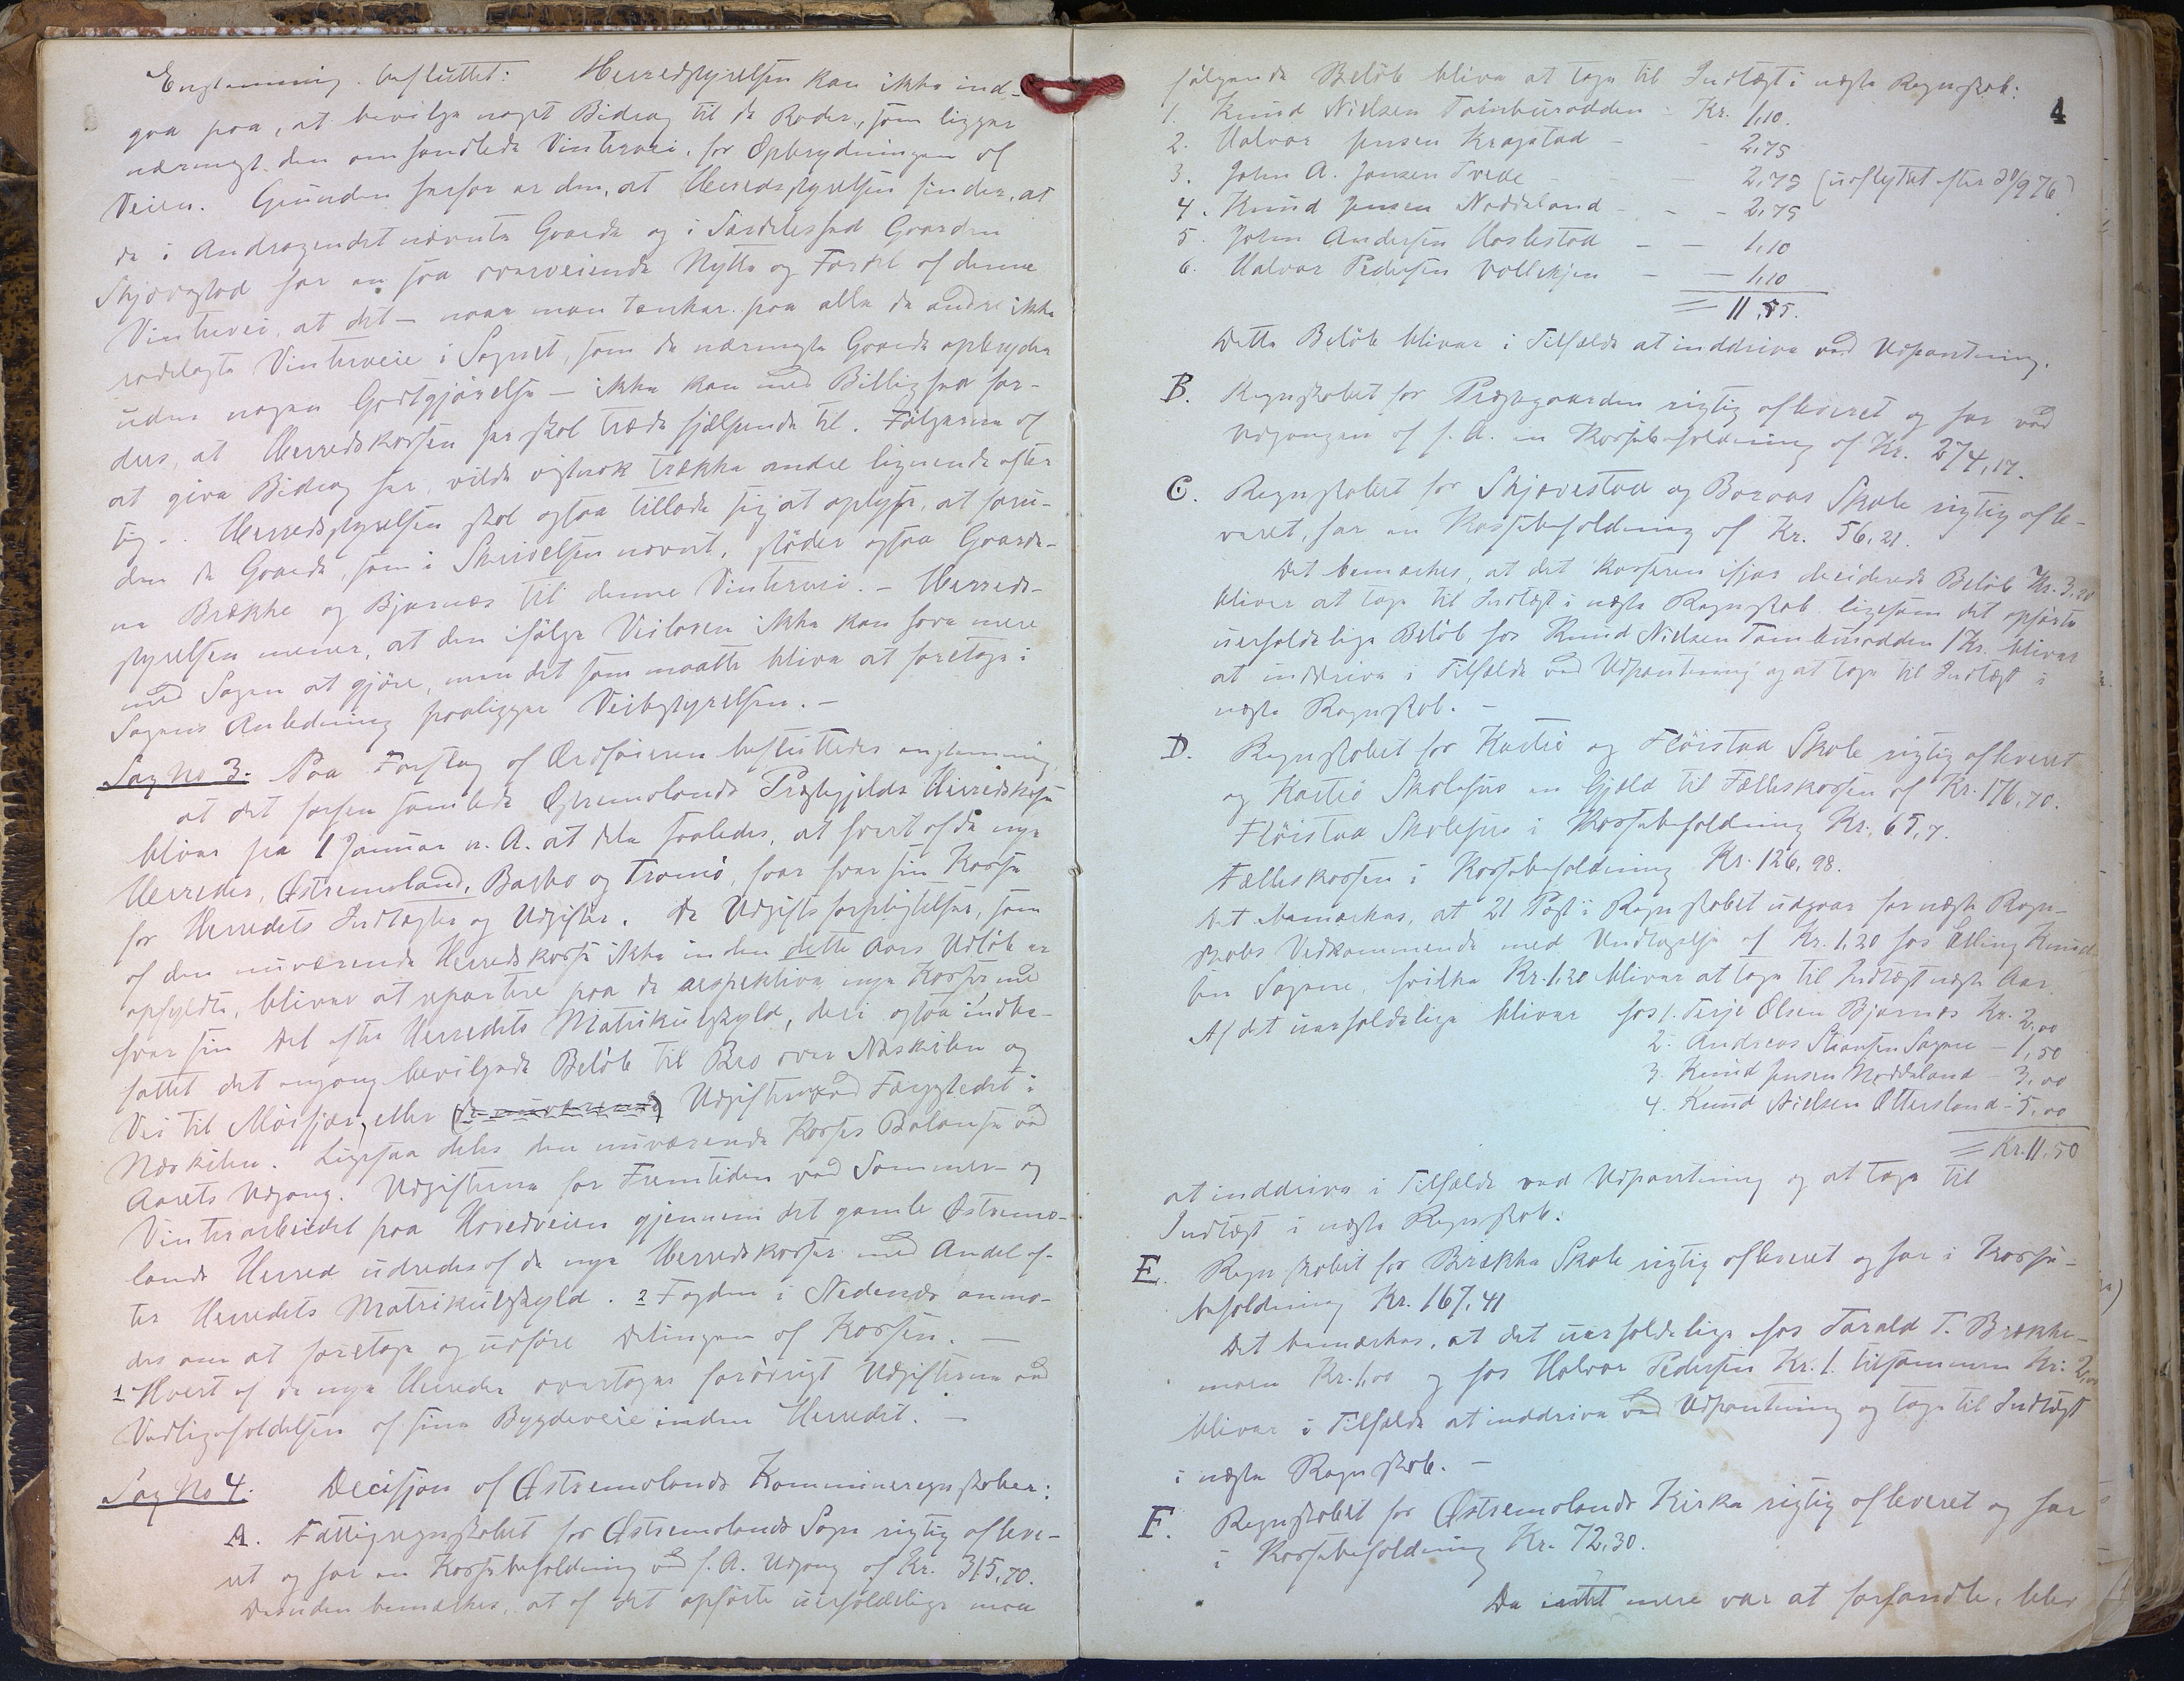 Enstemmig besluttet: Herredstyrelsen kan ikke ind-
gaa paa, at bevilge noget Bidrag til de Roder, som ligger
nærmest den omhandlede Vintervei, for Opbrydningen af
Veien. Grunden herfor er den, at Herredsstyrelsen finder, at
de i Andragendet nævnte Gaarde og i Særdeleshed Gaarden
Skjævestad har en saa overveiende Nytte og Fordel af denne
Vintervei, at det – naar man tænker paa alle de andre ikke
rodelagte Vinterveie i Sognet, som de nærmeste Gaarde opbryder
uden nogen Godtgjørelse – ikke kan med Billighed for-
dres, at Herredskassen her skal træde hjælpende til. Følgerne af
at give Bidrag her, vilde vistnok trække andre lignende efter
sig. Herredsstyrelsen skal ogsaa tillade sig at oplyse, at foru-
den de Gaarde, som i Skrivelsen nævnt, støder ogsaa Gaarde-
ne Brække og Bjornæs til denne Vintervei. – Herreds-
styrelsen mener, at den ifølge Veiloven ikke kan have mere
med Sagen at gjøre, men det som maatte blive at foretage i
Sagens Anledning paaligger Veibestyrelsen. –
Sag No 3. Paa Forslag af Ordføreren besluttedes enstemmig,
at det forhen samlede Østremolands Præstegjelds Herredskasse
bliver fra 1 Januar n. A. at dele saaledes, at hvert af de nye
Herreder, Østremoland, Barbo og Tromø, faar hver sin Kasse
for Herredets Indtægter og Udgifter. De Udgiftsforpligtelser, som
af den nuværende Herredskasse ikke inden dette Aars Udløb er
opfyldte, bliver at repartere paa de respektive nye Kasser med
hver sin Del efter Herredets Matrikulskyld, deri ogsaa indbe-
fattet det engang bevilgede Beløb til Bro over Næskilen og
Vei til Moisjær, eller (de nuværende) Udgifter ved Færgestedet i
Næskilen. Ligesaa deles den nuværende Kasses Balanse ved
Aarets Udgang. Udgifterne for Fremtiden ved Sommer- og
Vinterarbeidet paa Hovedveien gjennem det gamle Østremo-
lands Herred udredes af de nye Herredskasser med Andel ef-
ter Herredets Matrikulskyld. 2 Fogden i Nedenæs anmo-
des om at foretage og udføre Delingen af Kassen. –
1 Hvert af de nye Herreder overtager forøvrigt Udgifterne ved
Vedligeholdelsen af sine Bygdeveie inden Herredet. –
Sag No 4. Decisjon af Østremolands Kommuneregnskaber:
A. Fattigregnskabet for Østremolands Sogn rigtig afleve-
ret og har en Kassebeholdning ved f. A. Udgang af Kr. 315,70.
Desuden bemærkes, at af det opførte uerholdelige maa
4
følgende Beløb blive at tage til Indtægt i næste Regnskab:
1. Knud Nielsen Tambursodden - Kr. 1,10.
2. Halvor Jensen Kragstad - - 2,75
3. John A. Jensen Tvede - - 2,75 (udflyttet efter 30/9 76)
4. Knud Jensen Noddeland - - - 2,75
5. John Andersen Haslestad - - 1,10
6. Halvor Pedersen Vollekjen - - 1,10
= 11,55.
Dette Beløb bliver i Tilfælde at inddrive ved Udpantning.
B. Regnskabet for Præstegaarden rigtig afleveret og har ved
Udgangen af f. A. en Kassebeholdning af Kr. 274,17.
C. Regnskabet for Skjævestad og Boraas Skole rigtig afle-
veret, har en Kassebeholdning af Kr. 56,21.
Det bemærkes, at det Kasseren ifjor deciderede Beløb Kr. 3,20
bliver at tage til Indtægt i næste Regnskab ligesom det opførte
uerholdelige Beløb hos Knud Nielsen Tambursodden 1 Kr. bliver
at inddrive i Tilfælde ved Udpantning og at tage til Indtægt i
næste Regnskab. –
D. Regnskabet for Kastiø og Fløistad Skole rigtig afleveret
og Kastiø Skolehus en Gjæld til Fælleskassen af Kr. 176,70.
Fløistad Skolehus i Kassebeholdning Kr. 65,7.
Fælleskassen i Kassebeholdning Kr. 126,98.
Det bemærkes, at 21 Post i Regnskabet udgaar for næste Regn-
skabs Vedkommende med Undtagelse af Kr. 1,20 hos Elling Knud-
sen Sagene, hvilke Kr. 1,20 bliver at tage til Indtægt næste Aar.
Af det uerholdelige bliver hos 1. Terje Olsen Bjornæs Kr. 2,00
2. Andreas Steensen Sagene – 1,50
3. Knud Jensen Noddeland – 3,00
4. Knud Nielsen Ottersland – 5,00
= Kr. 11,50
at inddrive i Tilfælde ved Udpantning og at tage til
Indtægt i næste Regnskab.
E. Regnskabet for Brække Skole rigtig afleveret og har i Kasse-
beholdning Kr. 167,41
Det bemærkes, at det uerholdelige hos Tarald T. Brække-
moen Kr. 1,00 og hos Halvor Pedersen Kr. 1. tilsammen Kr. 2,00
bliver i Tilfælde at inddrive ved Udpantning og tage til Indtægt
i næste Regnskab. –
F. Regnskabet for Østremolands Kirke rigtig afleveret og har
i Kassebeholdning Kr. 72,30.
Da intet mere var at forhandle, blev